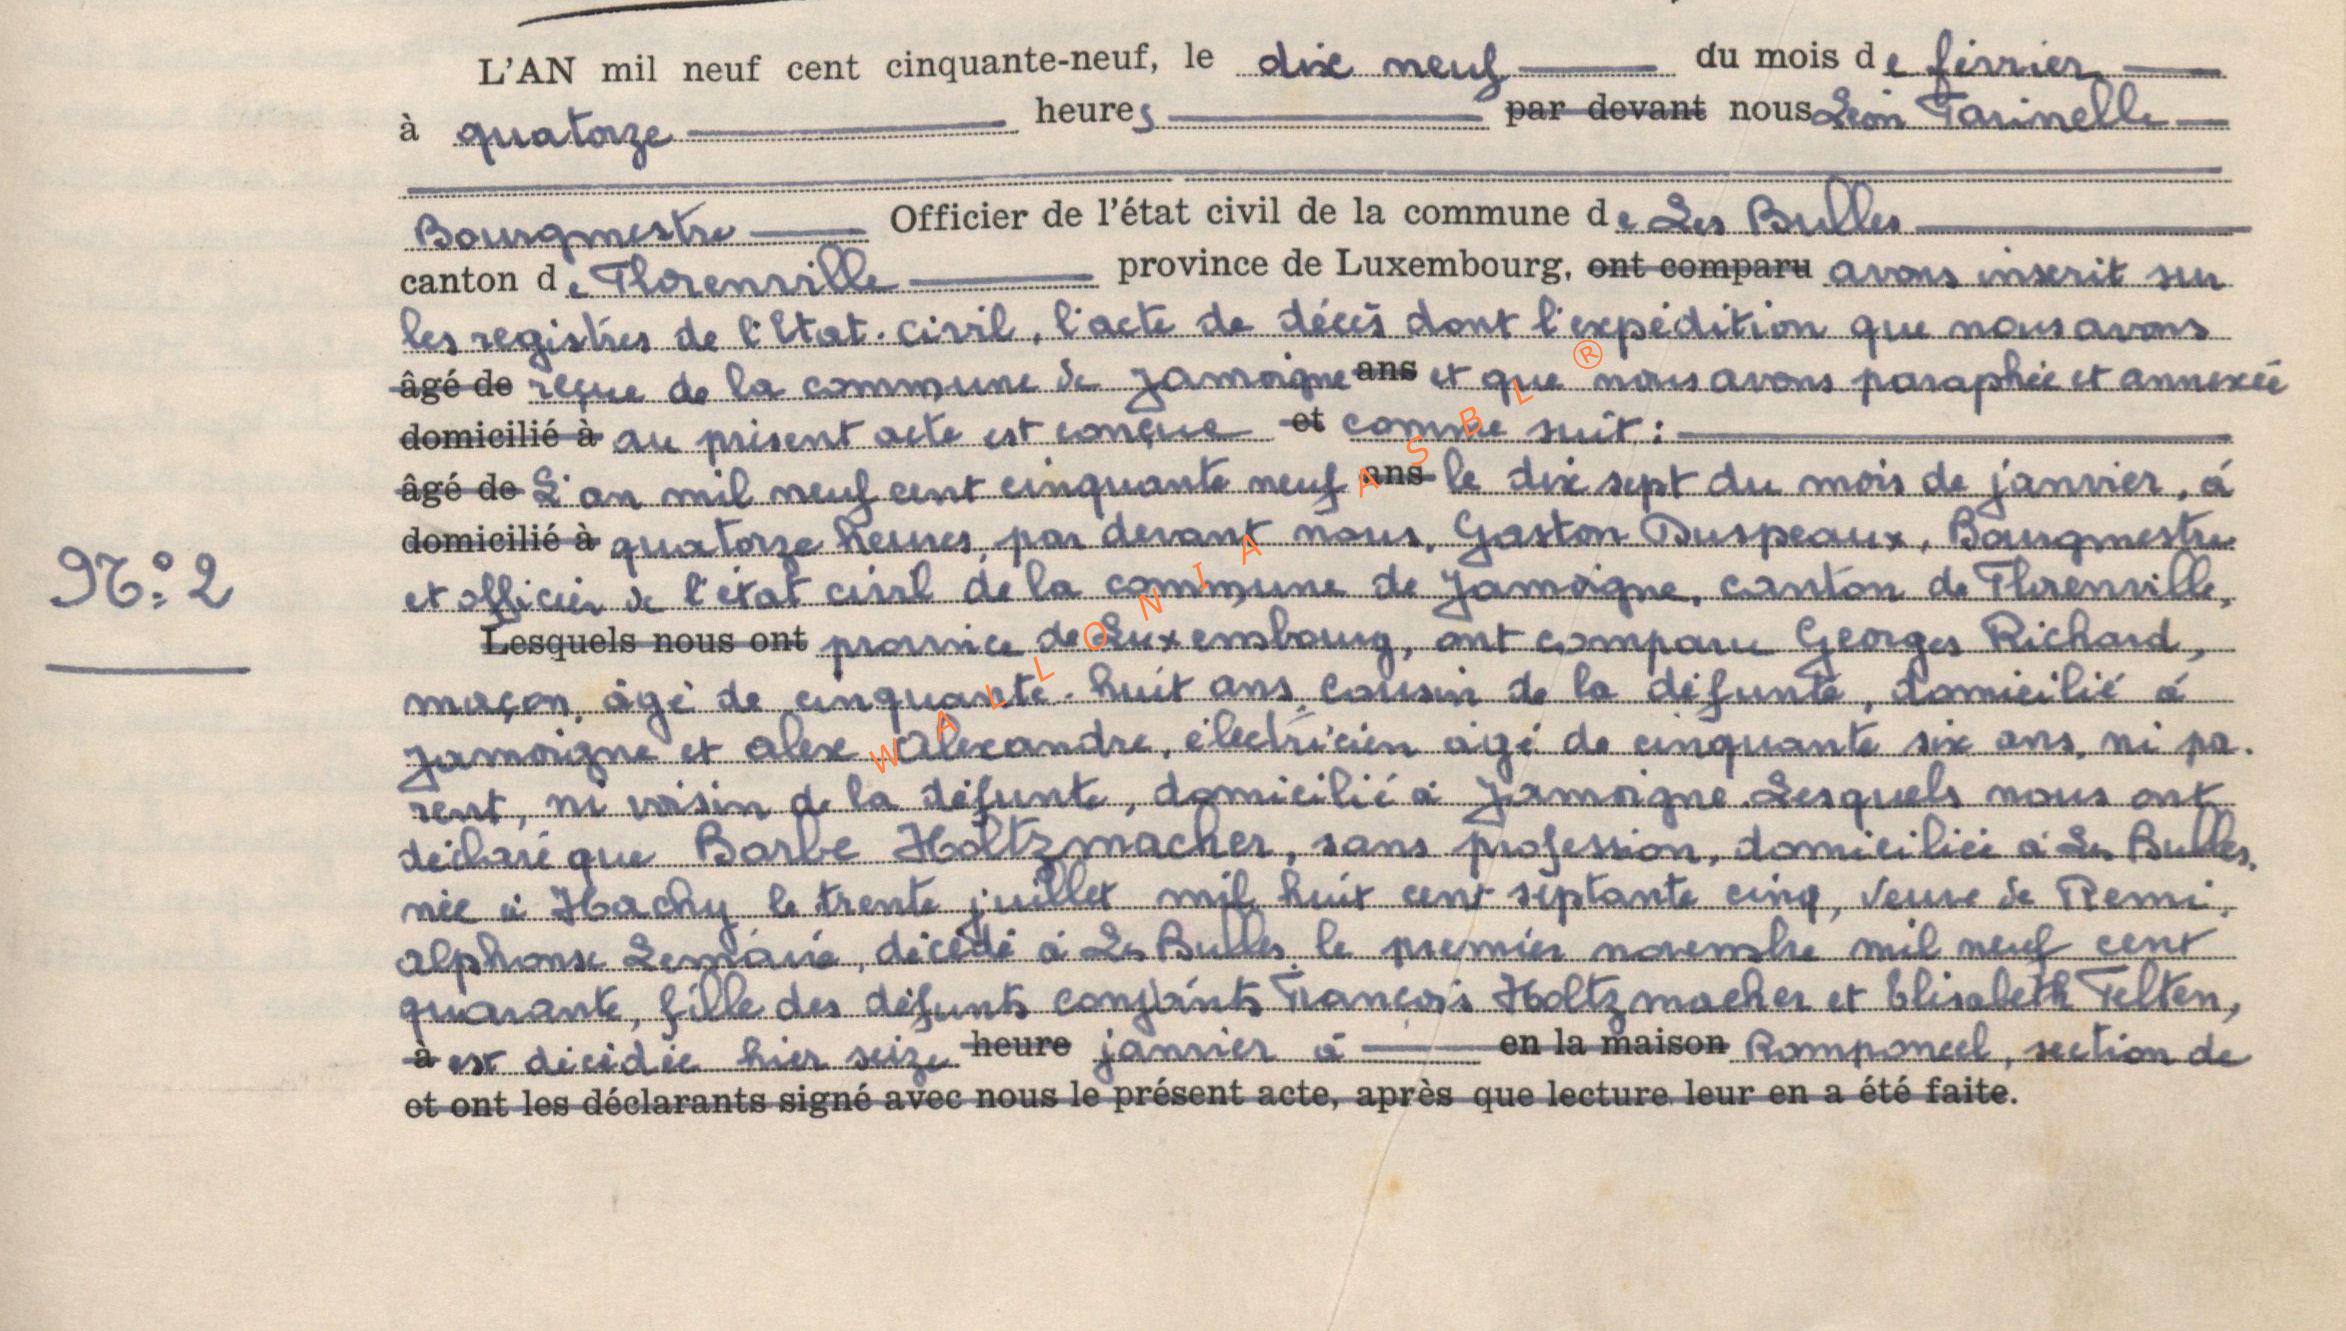 L'AN mil neuf cent cinquante-neuf, le dix neuf du mois de février
à quatorze heures par devant nous Léon Farinelle
Bourgmestre Officier de l'état civil de la commune de Les Bulles
canton de Florenville province de Luxembourg, ont comparu avons inscrit sur
les registres de l'Etat-Civil, l'acte de décès dont l'expédition que nous avons
âgé de reçue de la commune de Jamoigne ans et que nous avons paraphée et annexée
domicilié à au présent acte est conçue et comme suit :
âgé de L'an mil neuf cent cinquante neuf ans le dix sept du mois de janvier, à
domicilié à quatorze heures, par devant nous, Gaston Duspeaux, Bourgmestre
N° 2
et officier de l'état civil de la commune de Jamoigne, canton de Florenville,
Lesquels nous ont province de Luxembourg, ont comparu Georges Richard,
maçon, âgé de cinquante-huit ans, cousin de la défunte, domicilié à
Jamoigne et Alex Alexandre, électricien âgé de cinquante six ans, ni pa-
rent, ni voisin de la défunte, domicilié à Jamoigne. Lesquels nous ont
déclaré que Barbe Holtzmacher, sans profession, domiciliée à Les Bulles,
née à Hachy le trente juillet mil huit cent septante cinq, veuve de Remi,
Alphonse Lemaire, décédé à Les Bulles, le premier novembre mil neuf cent
quarante, fille des défunts conjoints François Holtzmacher et Elisabeth Felten,
à est décédée hier seize heure janvier à en la maison Romponcel, section de
et ont les déclarants signé avec nous le présent acte, après que lecture leur en a été faite.
WALLONIA ASBL ®